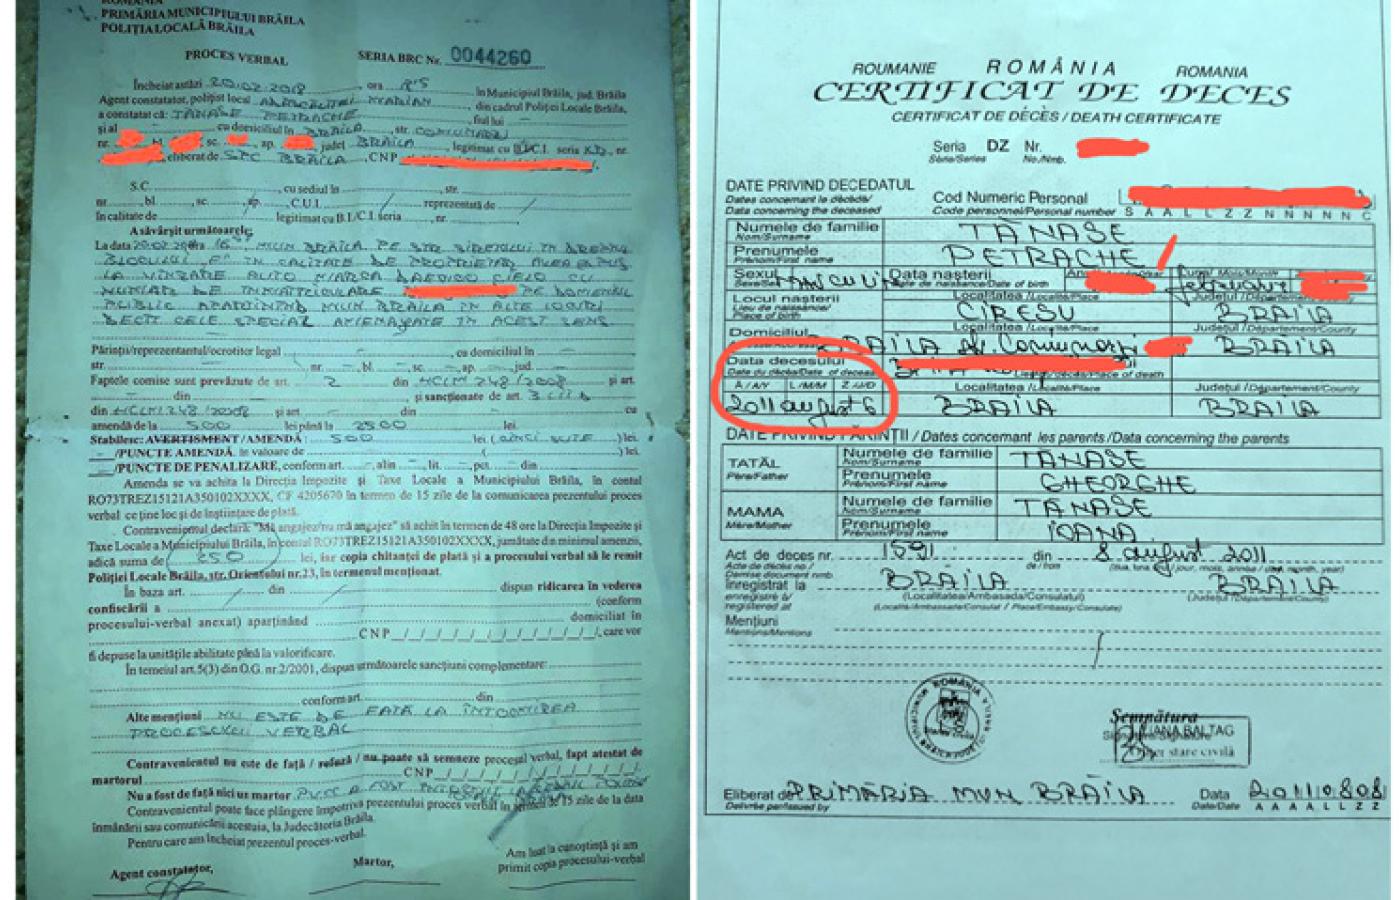 ROMÂNIA
PRIMĂRIA MUNICIPIULUI BRĂILA
POLIȚIA LOCALĂ BRĂILA
PROCES VERBAL
SERIA BRC Nr. 0044260
Încheiat astăzi 20.02.2018 ora 8:15 în Municipiul Brăila, jud. Brăila
Agent constatator, polițist local MARIAN din cadrul Poliției Locale Brăila,
a constatat că: TANASE PETRACHE fiul lui –
și al cu domiciliul în BRĂILA, str. COMUNARZI
nr. bl. sc. ap. județ BRĂILA, legitimat cu B.I./C.I. seria XR, nr.
eliberat de SPC BRĂILA, CNP
S.C. , cu sediul în , str.
nr. , bl. , sc. , ap. , C.U.I. reprezentată de
în calitate de legitimat cu B.I./C.I. seria , nr.
A săvârșit următoarele:
La data MUN. BRĂILA PE STR. SIRETULUI ÎN DREPTUL
BLOCULUI ÎN CALITATE DE PROPRIETAR AVEA EXPUS
LA VÎNZARE AUTO MARCA DAEWOO CIELO CU
NUMĂR DE ÎNMATRICULARE PE DOMENIUL
PUBLIC APARȚINÎND MUN. BRĂILA ÎN ALTE LOCURI
DECÎT CELE SPECIAL AMENAJATE ÎN ACEST SENS
Părinții/reprezentantul/ocrotitor legal – , cu domiciliul în –
str. – nr. – , bl. – , sc. – , ap. – , jud. –
Faptele comise sunt prevăzute de art. 2 din HCLM 248/2008 și art.
– din – și sancționate de art. 3
din HCLM 248/2008 și art – din – cu
amendă de la 500 lei până la 2500 lei.
Stabilesc: AVERTISMENT/AMENDĂ: 500 lei (CINCI SUTE) lei.
/PUNCTE AMENDĂ, în valoare de ( ) lei.
/PUNCTE DE PENALIZARE, conform art. – , alin – lit. – , pct. – din –
Amenda se va achita la Direcția Impozite și Taxe Locale a Municipiului Brăila, în contul
RO73TREZ15121A350102XXXX, CF 4205670 în termen de 15 zile de la comunicarea prezentului proces
verbal ce ține loc și de înștiințare de plată.
Contravenientul declară: "Mă angajez/nu mă angajez" să achit în termen de 48 ore la Direcția Impozite și
Taxe Locale a Municipiului Brăila, în contul RO73TREZ15121A350102XXXX, jumătate din minimul amenzii,
adică suma de 250 lei, iar copia chitanței de plată și a procesului verbal să le remit
Poliției Locale Brăila, str. Orientului nr.23, în termenul menționat.
În baza art. din dispun ridicarea în vederea
confiscării a (conform
procesului-verbal anexat) aparținând domiciliat în
CNP , care vor
fi depuse la unitățile abilitate până la valorificare.
În temeiul art.5(3) din O.G. nr.2/2001, dispun următoarele sancțiuni complementare:
conform art. din
Alte mențiuni NU ESTE DE FAȚĂ LA ÎNTOCMIREA
PROCESULUI VERBAL
Contravenientul nu este de față / refuză / nu poate să semneze procesul verbal, fapt atestat de
martorul CNP
Nu a fost de față nici un martor
Contravenientul poate face plângere împotriva prezentului proces verbal în termen de 15 zile de la data
înmânării sau comunicării acestuia, la Judecătoria Brăila.
Pentru care am încheiat prezentul proces-verbal.
Agent constatator,
Martor,
Am luat la cunoștință și am
primit copia procesului-verbal
ROUMANIE ROMÂNIA ROMANIA
CERTIFICAT DE DECES
CERTIFICAT DE DÉCÈS / DEATH CERTIFICATE
Seria DZ Nr.
Série/Series No./Nmb.
DATE PRIVIND DECEDATUL
Dates concernant le décédé/
Data concerning the deceased
Cod Numeric Personal
Code personnel/Personal number S A A L L Z Z N N N N N C
Numele de familie TĂNASE
Nom/Surname
Prenumele PETRACHE
Prénom/First name
Sexul Masculin Data nașterii februarie
Sexe/Sex Date de naissance/Date of birth
Locul nașterii Localitatea /Localité/Place Județul /Département/County
Lieu de naissance/ CIREȘU BRĂILA
Place of birth
Domiciliul Localitatea /Localité/Place Județul /Département/County
BRĂILA str. Comunarzi BRĂILA
Data decesului
Date du décès/Date of decease Lieu du décès/Place of death
A / A/Y L / M/M Z /J/D Localitatea /Localité/Place Județul /Département/County
2011 august 6 BRĂILA BRĂILA
DATE PRIVIND PĂRINȚII / Dates concernant les parents /Data concerning the parents
TATĂL Numele de familie TĂNASE
Père/Father Nom/Surname
Prenumele GHEORGHE
Prénom/First name
MAMA Numele de familie TĂNASE
Mère/Mother Nom/Surname
Prenumele IOANA
Prénom/First name
Act de deces nr. 1591 din 8 august 2011
Acte de décès no./ de/from (ziua, luna, anul / jour, mois, année / day, month, year)
Demise document nmb.
Înregistrat la BRĂILA BRĂILA
enregistré à/ (Localitatea/Ambasada/Consulatul) (Județul /Département/County)
registered at (Localité/Ambassade/Consulat / Place/Embassy/Consulate)
Mențiuni
Mentions/Mentions
ROMÂNIA
Semnătura
Signature/Signature
IULIANA BALTAG
Ofițer stare civilă
Eliberat de PRIMĂRIA MUN BRĂILA Data 20110808
Délivré par/Issued by Date/Date A A A A L L Z Z